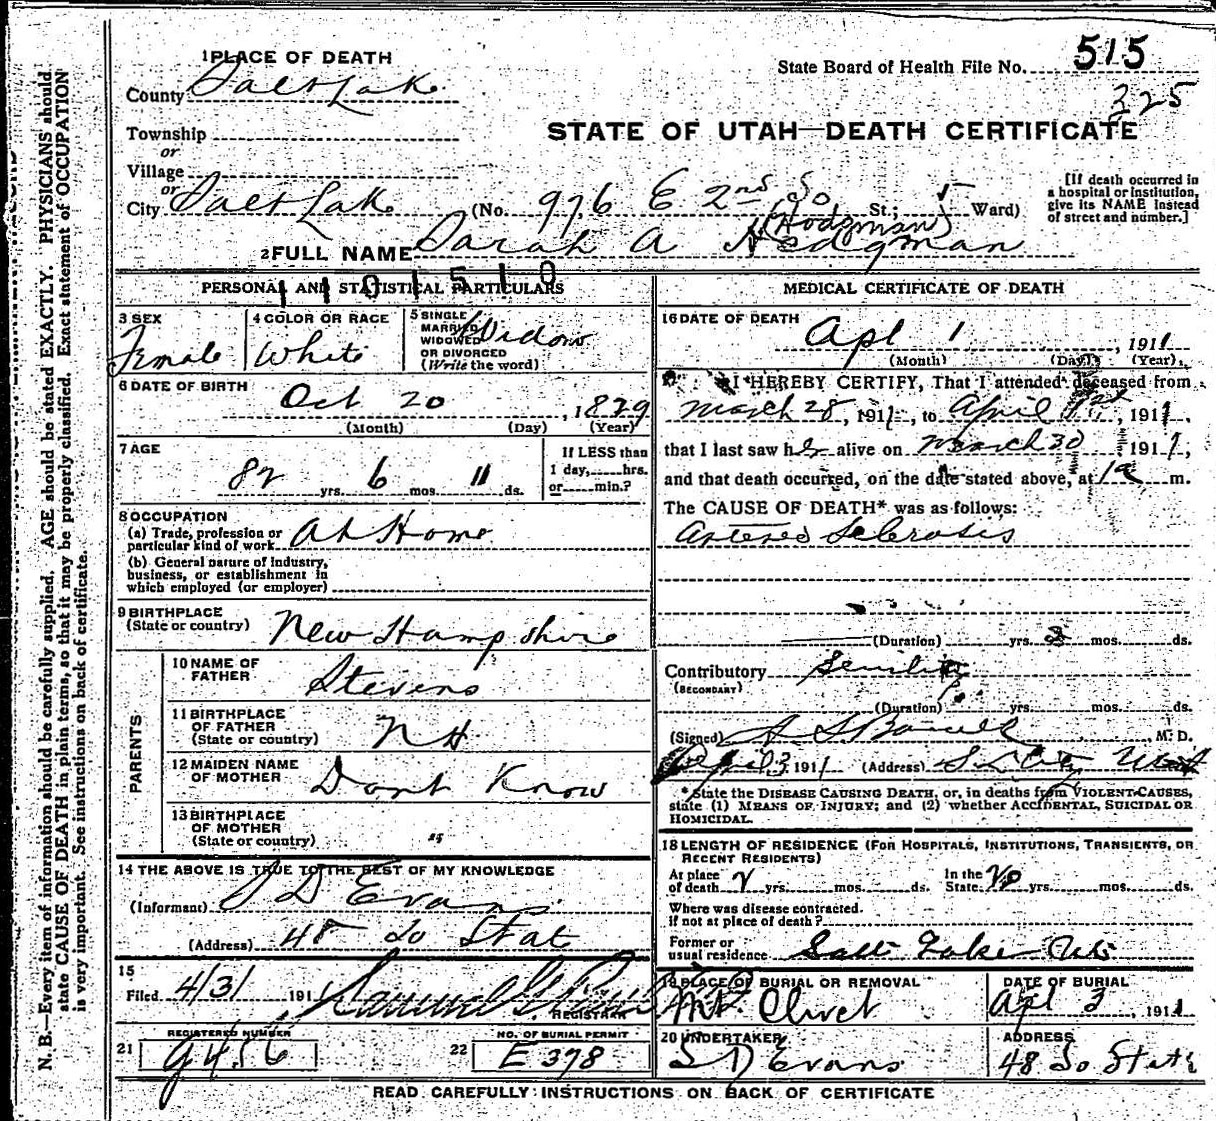 1 PLACE OF DEATH
County Salt Lake
State Board of Health File No. 515
325
Township
or
Village
or
STATE OF UTAH—DEATH CERTIFICATE
City Salt Lake (No. 976 E 2nd So St.; 5 Ward)
[If death occurred in
a hospital or institution,
give its NAME instead
of street and number.]
(Hodgman)
2 FULL NAME Sarah A Hodgman
1 1 0 1 5 1 0
PERSONAL AND STATISTICAL PARTICULARS
3 SEX
Female
4 COLOR OR RACE
White
5 SINGLE
MARRIED
WIDOWED
OR DIVORCED
(Write the word)
Widow
6 DATE OF BIRTH
Oct 20, 1829
(Month) (Day) (Year)
7 AGE
82 yrs. 6 mos. 11 ds.
If LESS than
1 day, hrs.
or min.?
8 OCCUPATION
(a) Trade, profession or
particular kind of work At Home
(b) General nature of industry,
business, or establishment in
which employed (or employer)
9 BIRTHPLACE
(State or country) New Hampshire
PARENTS
10 NAME OF
FATHER Stevens
11 BIRTHPLACE
OF FATHER
(State or country) N H
12 MAIDEN NAME
OF MOTHER Dont Know
13 BIRTHPLACE
OF MOTHER
(State or country) "
14 THE ABOVE IS TRUE TO THE BEST OF MY KNOWLEDGE
(Informant) S D Evans
(Address) 48 So Stat
15
Filed 4/3/ 191
REGISTRAR
REGISTERED NUMBER
21 G 456
NO. OF BURIAL PERMIT
22 E 398
MEDICAL CERTIFICATE OF DEATH
16 DATE OF DEATH
Apl 1, 1911
(Month) (Day) (Year)
I HEREBY CERTIFY, That I attended deceased from
March 28, 1911, to April 1st, 1911,
that I last saw her alive on March 30 1911,
and that death occurred, on the date stated above, at m.
The CAUSE OF DEATH* was as follows:
Arterio Sclerosis
(Duration) yrs. mos. ds.
Contributory Senility
(SECONDARY)
(Duration) yrs. mos. ds.
(Signed) M. D.
April 3 1911 (Address) S L City Utah
* State the DISEASE CAUSING DEATH, or, in deaths from VIOLENT CAUSES,
state (1) MEANS OF INJURY; and (2) whether ACCIDENTAL, SUICIDAL OR
HOMICIDAL.
18 LENGTH OF RESIDENCE (FOR HOSPITALS, INSTITUTIONS, TRANSIENTS, OR
RECENT RESIDENTS)
At place
of death yrs. mos. ds.
In the
State yrs. mos. ds.
Where was disease contracted.
if not at place of death?
Former or
usual residence Salt Lake
19 PLACE OF BURIAL OR REMOVAL
Mt. Olivet
DATE OF BURIAL
Apl 3, 1911
20 UNDERTAKER
S D Evans
ADDRESS
48 So State
READ CAREFULLY INSTRUCTIONS ON BACK OF CERTIFICATE
N. B.—Every item of information should be carefully supplied. AGE should be stated EXACTLY. PHYSICIANS should
state CAUSE OF DEATH in plain terms, so that it may be properly classified. Exact statement of OCCUPATION
is very important. See instructions on back of certificate.